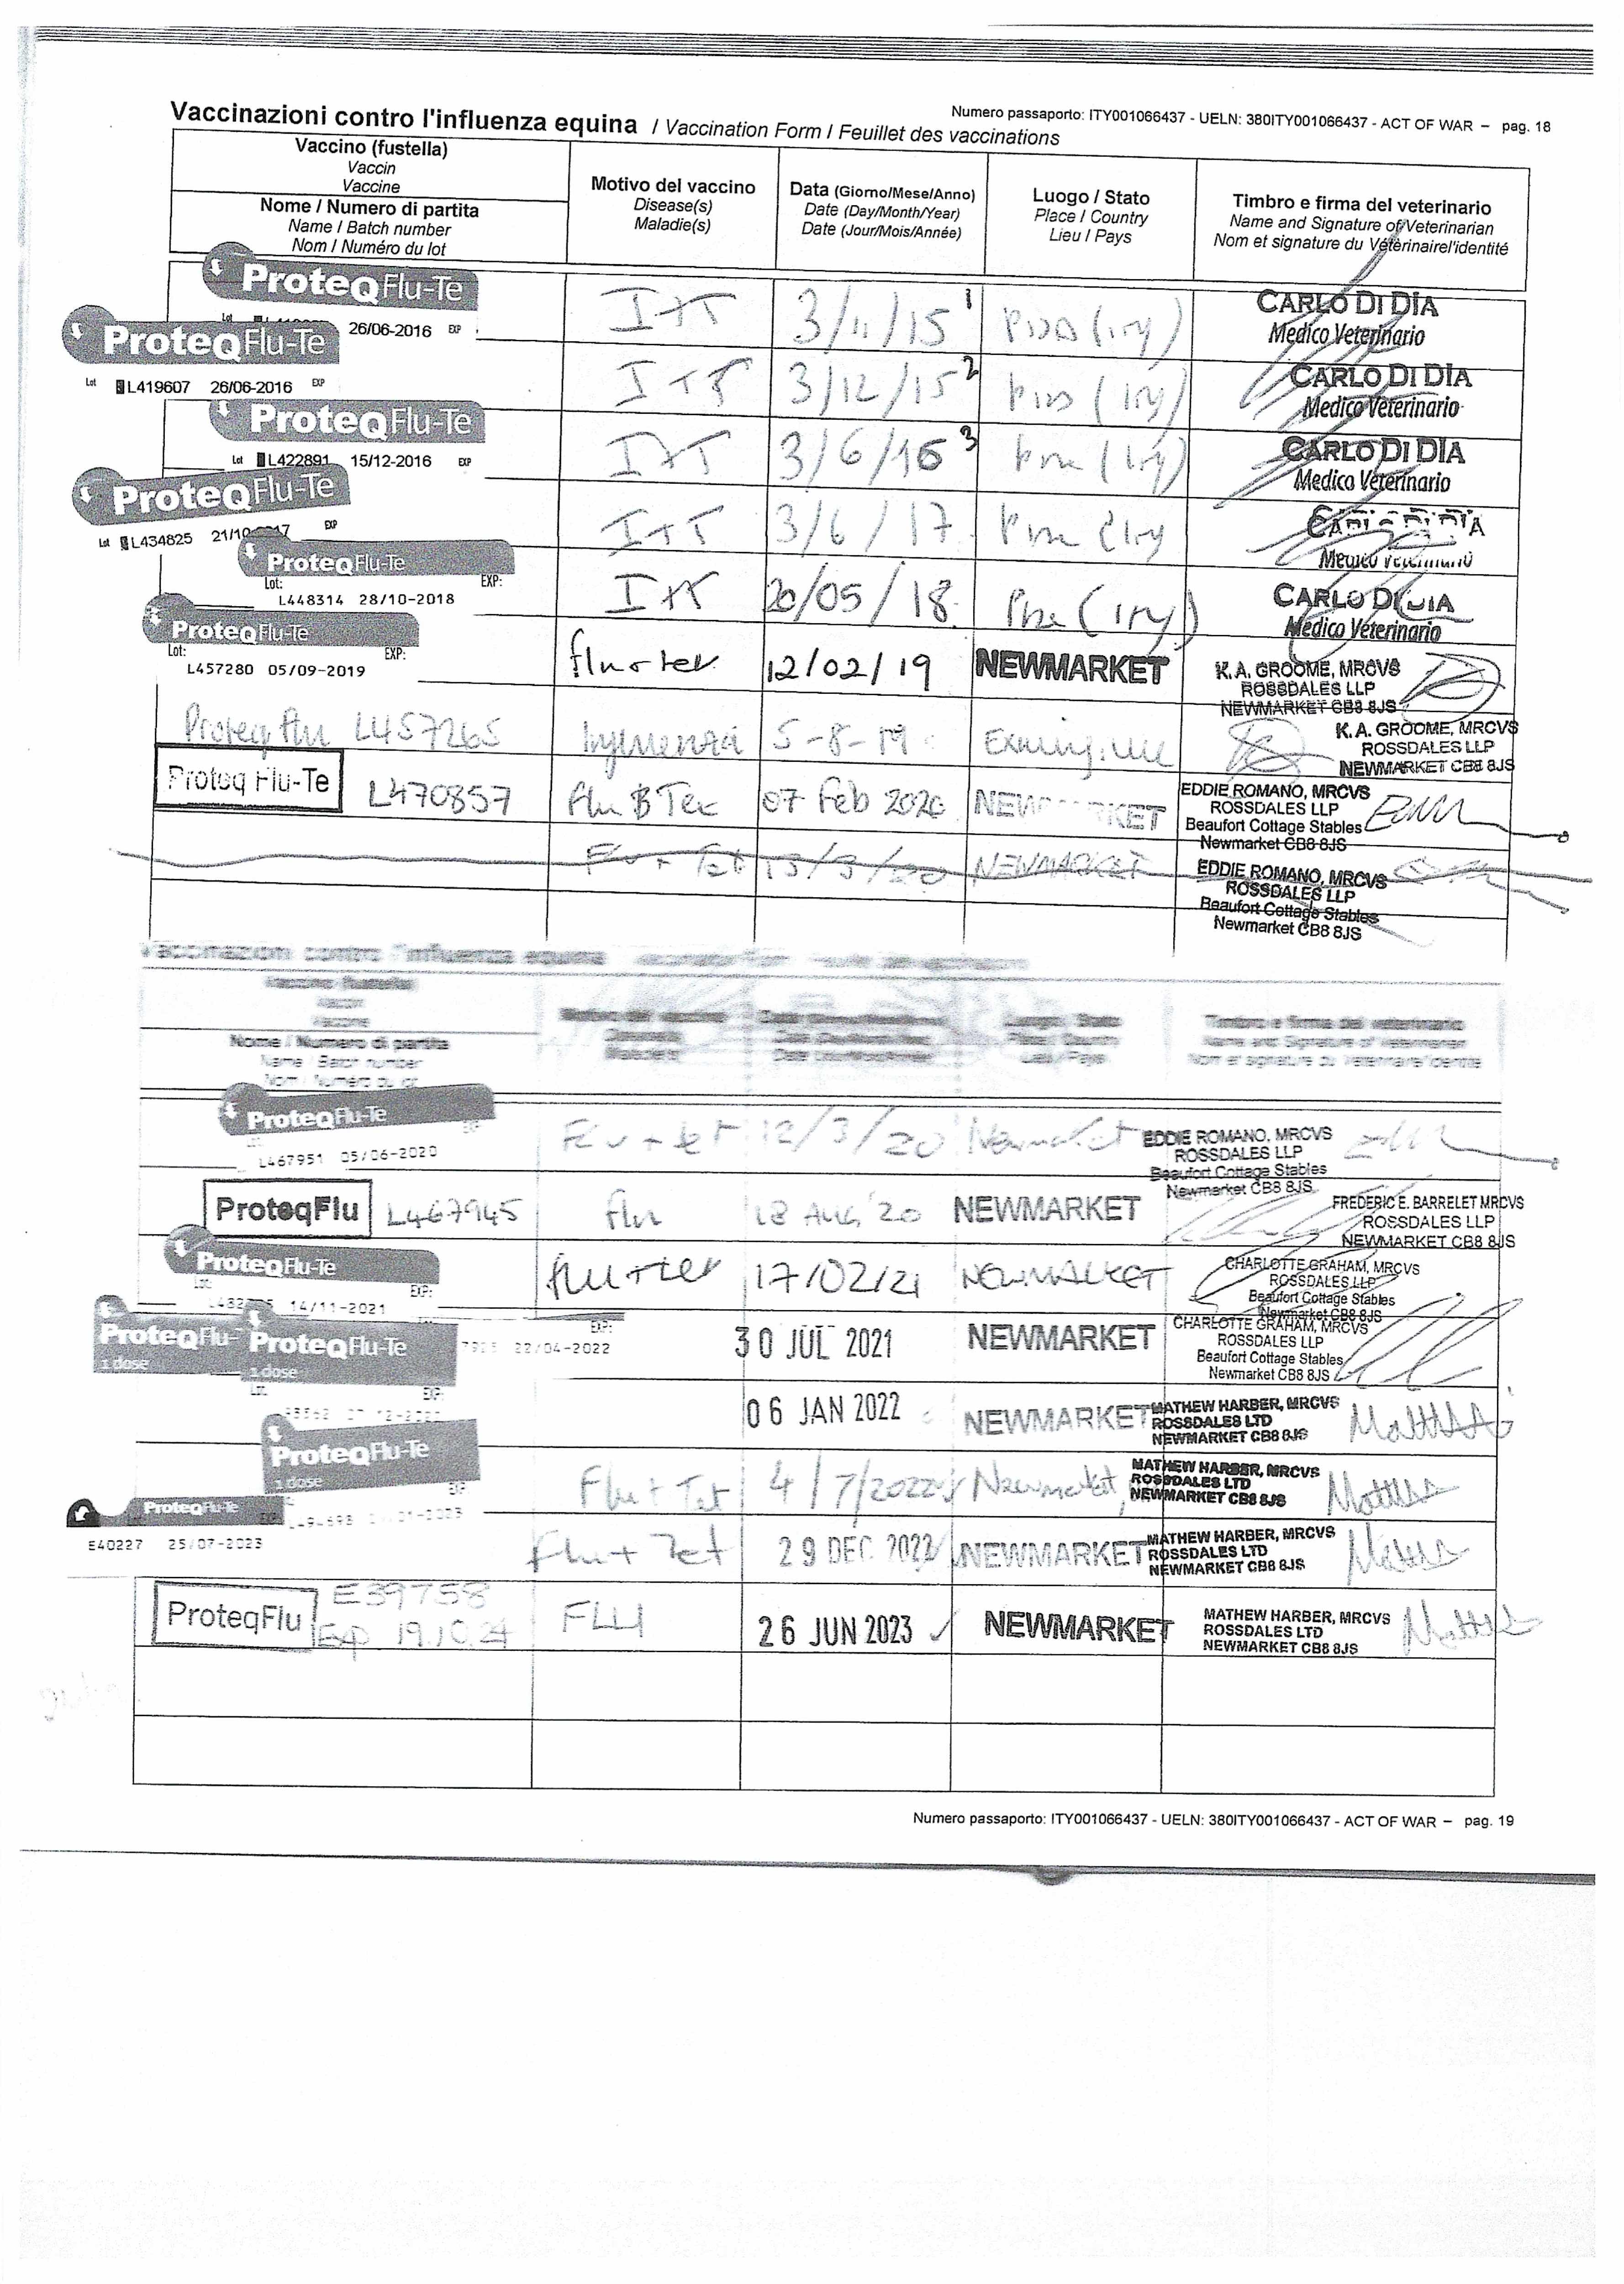 Vaccinazioni contro l'influenza equina / Vaccination Form / Feuillet des vaccinations
Numero passaporto: ITY001066437 - UELN: 380ITY001066437 - ACT OF WAR – pag. 18
Vaccino (fustella)
Vaccin
Vaccine
Nome / Numero di partita
Name / Batch number
Nom / Numéro du lot
Motivo del vaccino
Disease(s)
Maladie(s)
Data (Giorno/Mese/Anno)
Date (Day/Month/Year)
Date (Jour/Mois/Année)
Luogo / Stato
Place / Country
Lieu / Pays
Timbro e firma del veterinario
Name and Signature of Veterinarian
Nom et signature du Vétèrinairel'identité
ProteqFlu-Te
Lot 26/06-2016 EXP
I+T
3/11/15 1
CARLO DI DIA
Medico Veterinario
ProteqFlu-Te
Lot L419607 26/06-2016 EXP
I+T
3/12/15 2
CARLO DI DIA
Medico Veterinario
ProteqFlu-Te
Lot L422891 15/12-2016 EXP
I+T
3/6/16 3
CARLO DI DIA
Medico Veterinario
ProteqFlu-Te
Lot L434825 EXP
I+T
3/6/17
Medico
ProteqFlu-Te
Lot: EXP:
L448314 28/10-2018
I+T
20/05/18
CARLO DI DIA
Medico Veterinario
ProteqFlu-Te
Lot: EXP:
L457280 05/09-2019
flu + tet
12/02/19
NEWMARKET
K.A. GROOME, MRCVS
ROSSDALES LLP
NEWMARKET CB8 8JS
Proteq flu L457265
Influenza
5-8-19
Exning, UK
K.A. GROOME, MRCVS
ROSSDALES LLP
NEWMARKET CB8 8JS
Proteq Flu-Te L470857
Flu & Tet
07 Feb 2020
NEWMARKET
EDDIE ROMANO, MRCVS
ROSSDALES LLP
Beaufort Cottage Stables
Newmarket CB8 8JS
Flu + Tet 13/3/20 NEWMARKET
EDDIE ROMANO, MRCVS
ROSSDALES LLP
Beaufort Cottage Stables
Newmarket CB8 8JS
Vaccinazioni contro l'influenza equina
Nome / Numero di partita
Name / Batch number
Timbro e firma del veterinario
Name and Signature of Veterinarian
ProteqFlu-Te
L467951 05/06-2020
Flu + tet
12/3/20
Newmarket
EDDIE ROMANO, MRCVS
ROSSDALES LLP
Beaufort Cottage Stables
Newmarket CB8 8JS
ProteqFlu L467945
flu
18 AUG '20
NEWMARKET
FREDERIC E. BARRELET MRCVS
ROSSDALES LLP
NEWMARKET CB8 8JS
ProteqFlu-Te
Lot: EXP:
14/11-2021
flu + tet
17/02/21
NEWMARKET
CHARLOTTE GRAHAM, MRCVS
ROSSDALES LLP
Beaufort Cottage Stables
Newmarket CB8 8JS
ProteqFlu-
1 dose
EXP:
22/04-2022
30 JUL 2021
NEWMARKET
CHARLOTTE GRAHAM, MRCVS
ROSSDALES LLP
Beaufort Cottage Stables
Newmarket CB8 8JS
ProteqFlu-Te
1 dose
Lot: EXP:
06 JAN 2022
NEWMARKET
MATHEW HARBER, MRCVS
ROSSDALES LTD
NEWMARKET CB8 8JS
ProteqFlu-Te
1 dose
EXP
Flu + Tet
4/7/2022
Newmarket
MATHEW HARBER, MRCVS
ROSSDALES LTD
NEWMARKET CB8 8JS
ProteqFlu-Te
E40227 25/07-2023
Flu + Tet
29 DEC 2022
NEWMARKET
MATHEW HARBER, MRCVS
ROSSDALES LTD
NEWMARKET CB8 8JS
ProteqFlu E39758
Exp 19.10.24
FLU
26 JUN 2023
NEWMARKET
MATHEW HARBER, MRCVS
ROSSDALES LTD
NEWMARKET CB8 8JS
Numero passaporto: ITY001066437 - UELN: 380ITY001066437 - ACT OF WAR – pag. 19